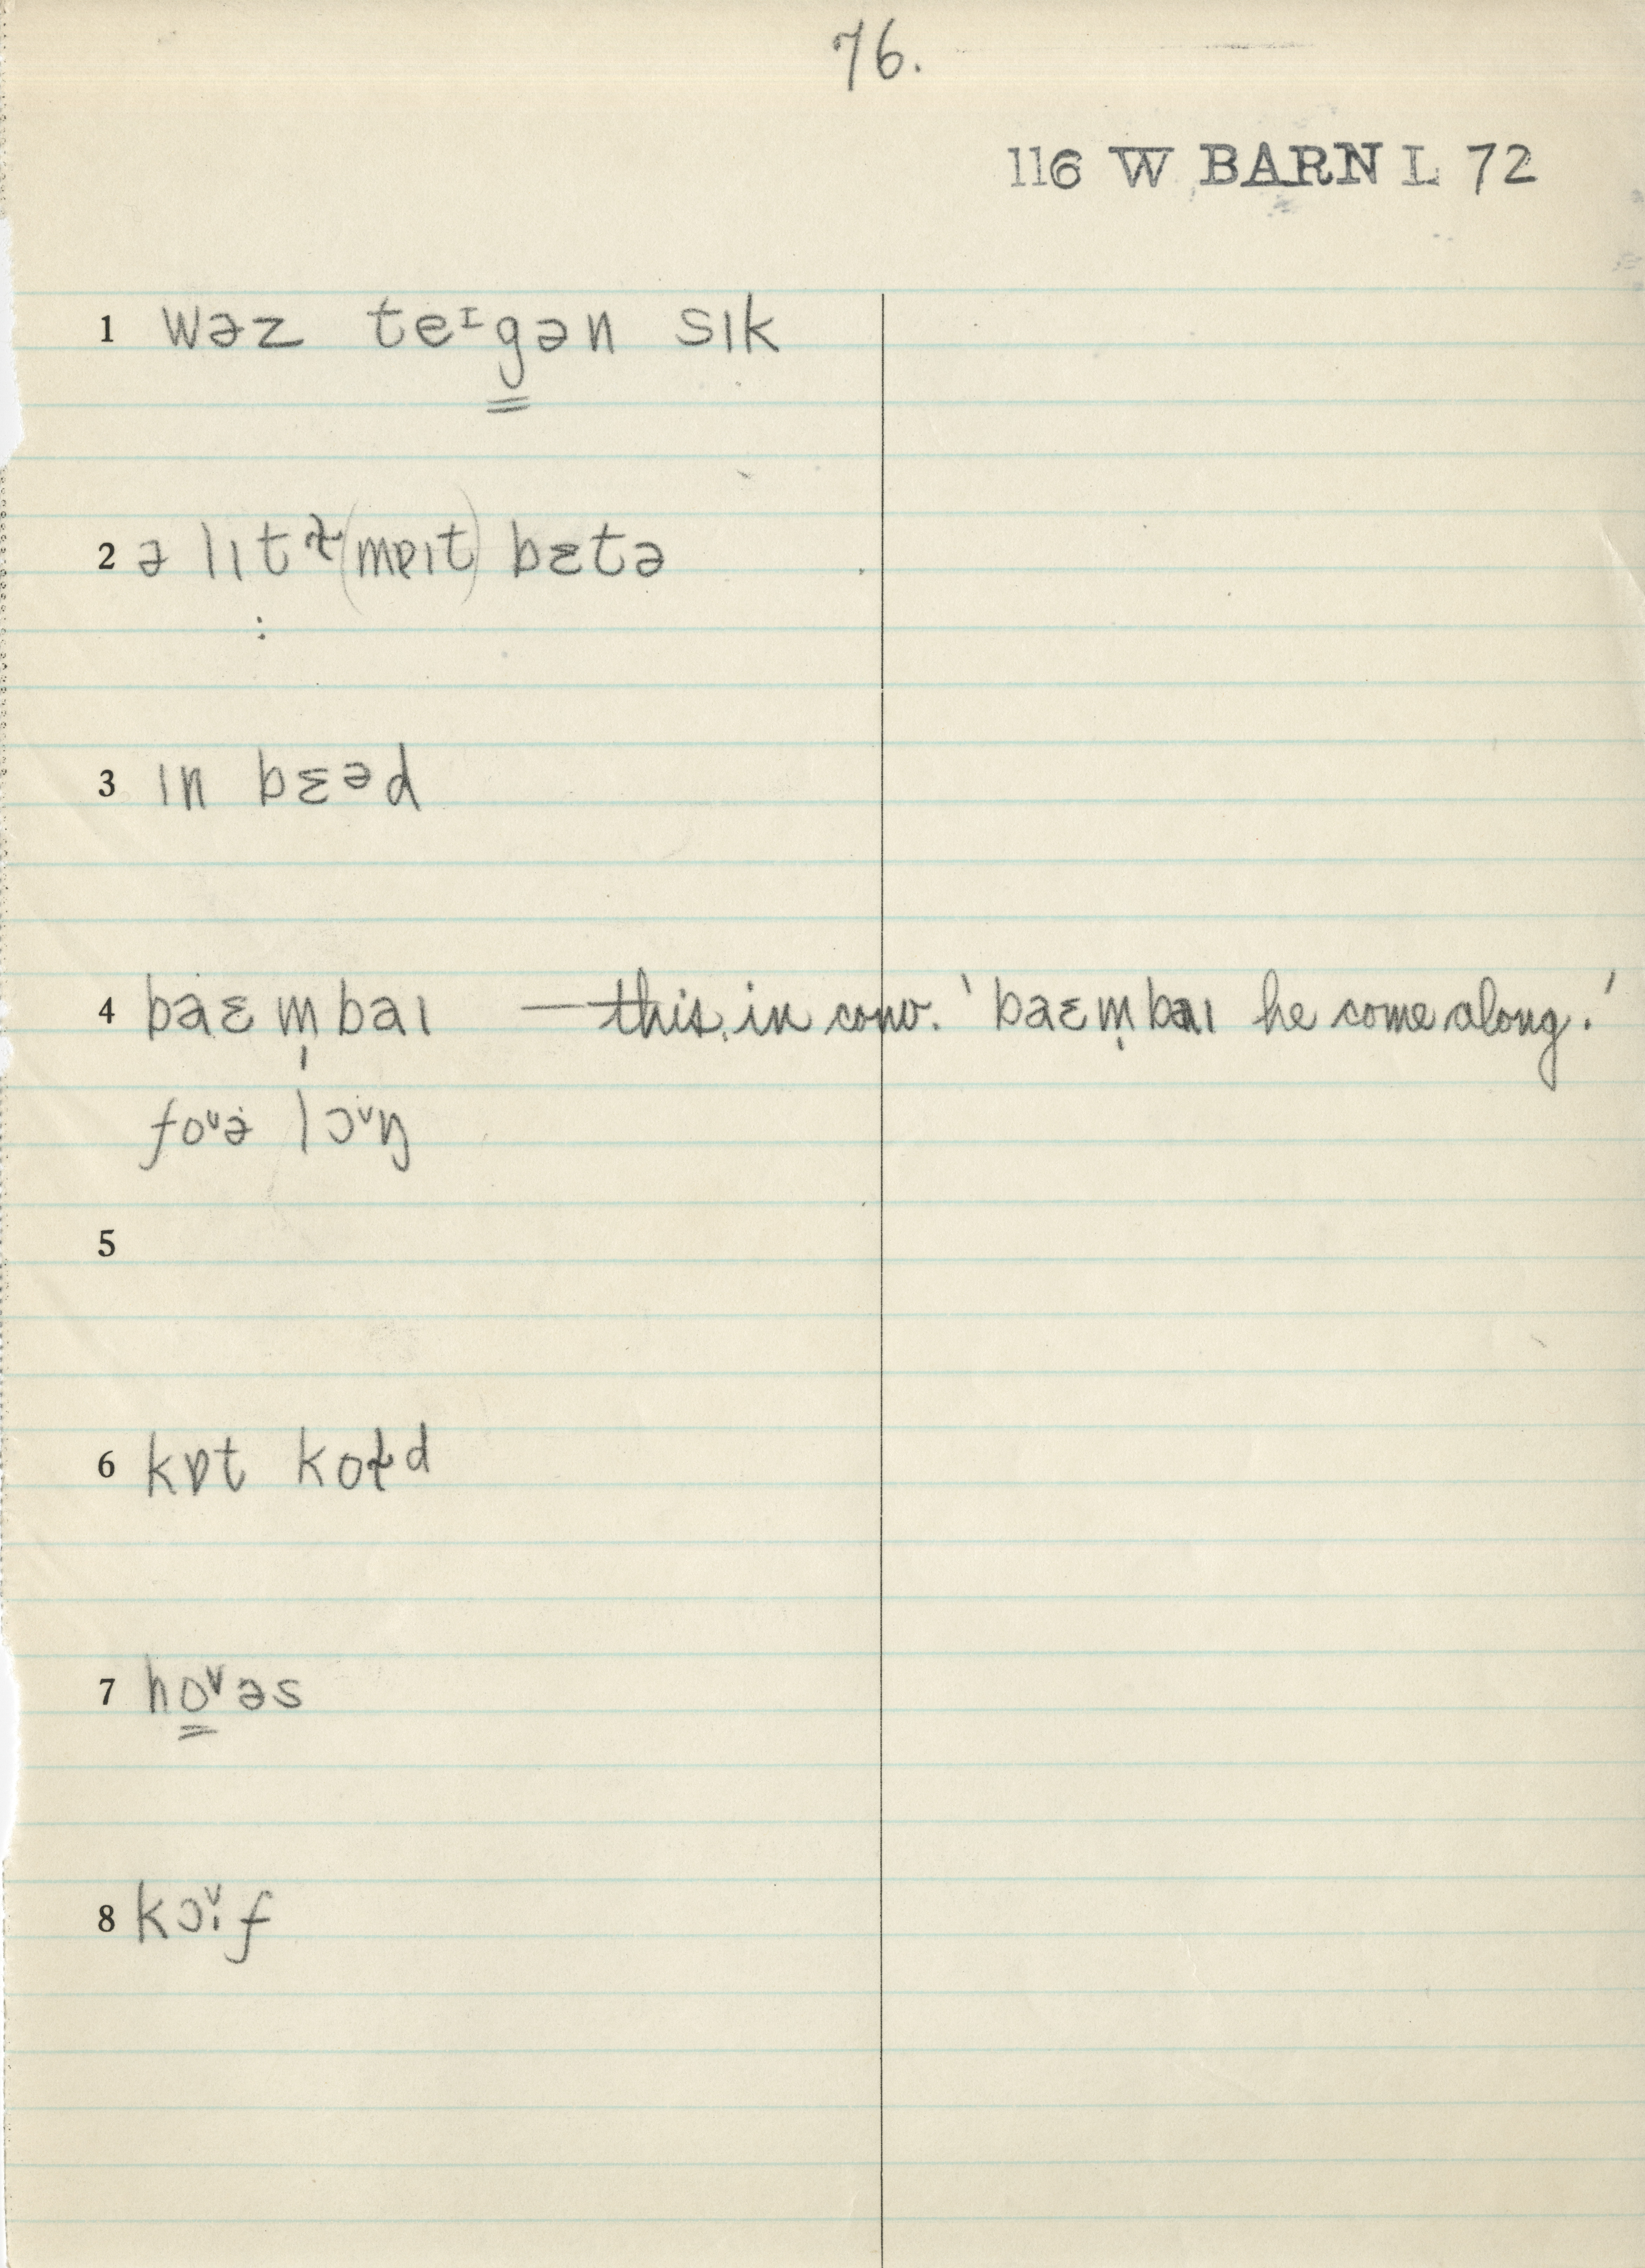 76.
116 W BARN L 72
1 wəz teᶦg̳ən sɪk
2 ə lɪt ɫ (mɐɪt) bɛtə
3 ɪn bɛəd
4 baɛm̩baɪ — this in conv. 'baɛm̩baɪ he come along.'
foᵛə lɔᵛŋ
5
6 kɒt koɫd
7 ho̳ᵛəs
8 kɔᵛɪf